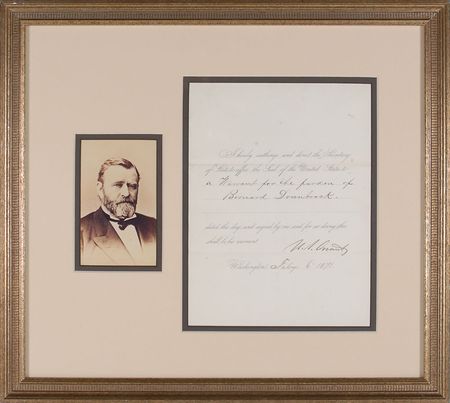 I hereby authorize and direct the Secretary
of State to affix the Seal of the United States to
a Warrant for the pardon of
Bernard
dated this day and signed by me and for so doing this
shall be his warrant.
U.S. Grant
Washington, 6, 187